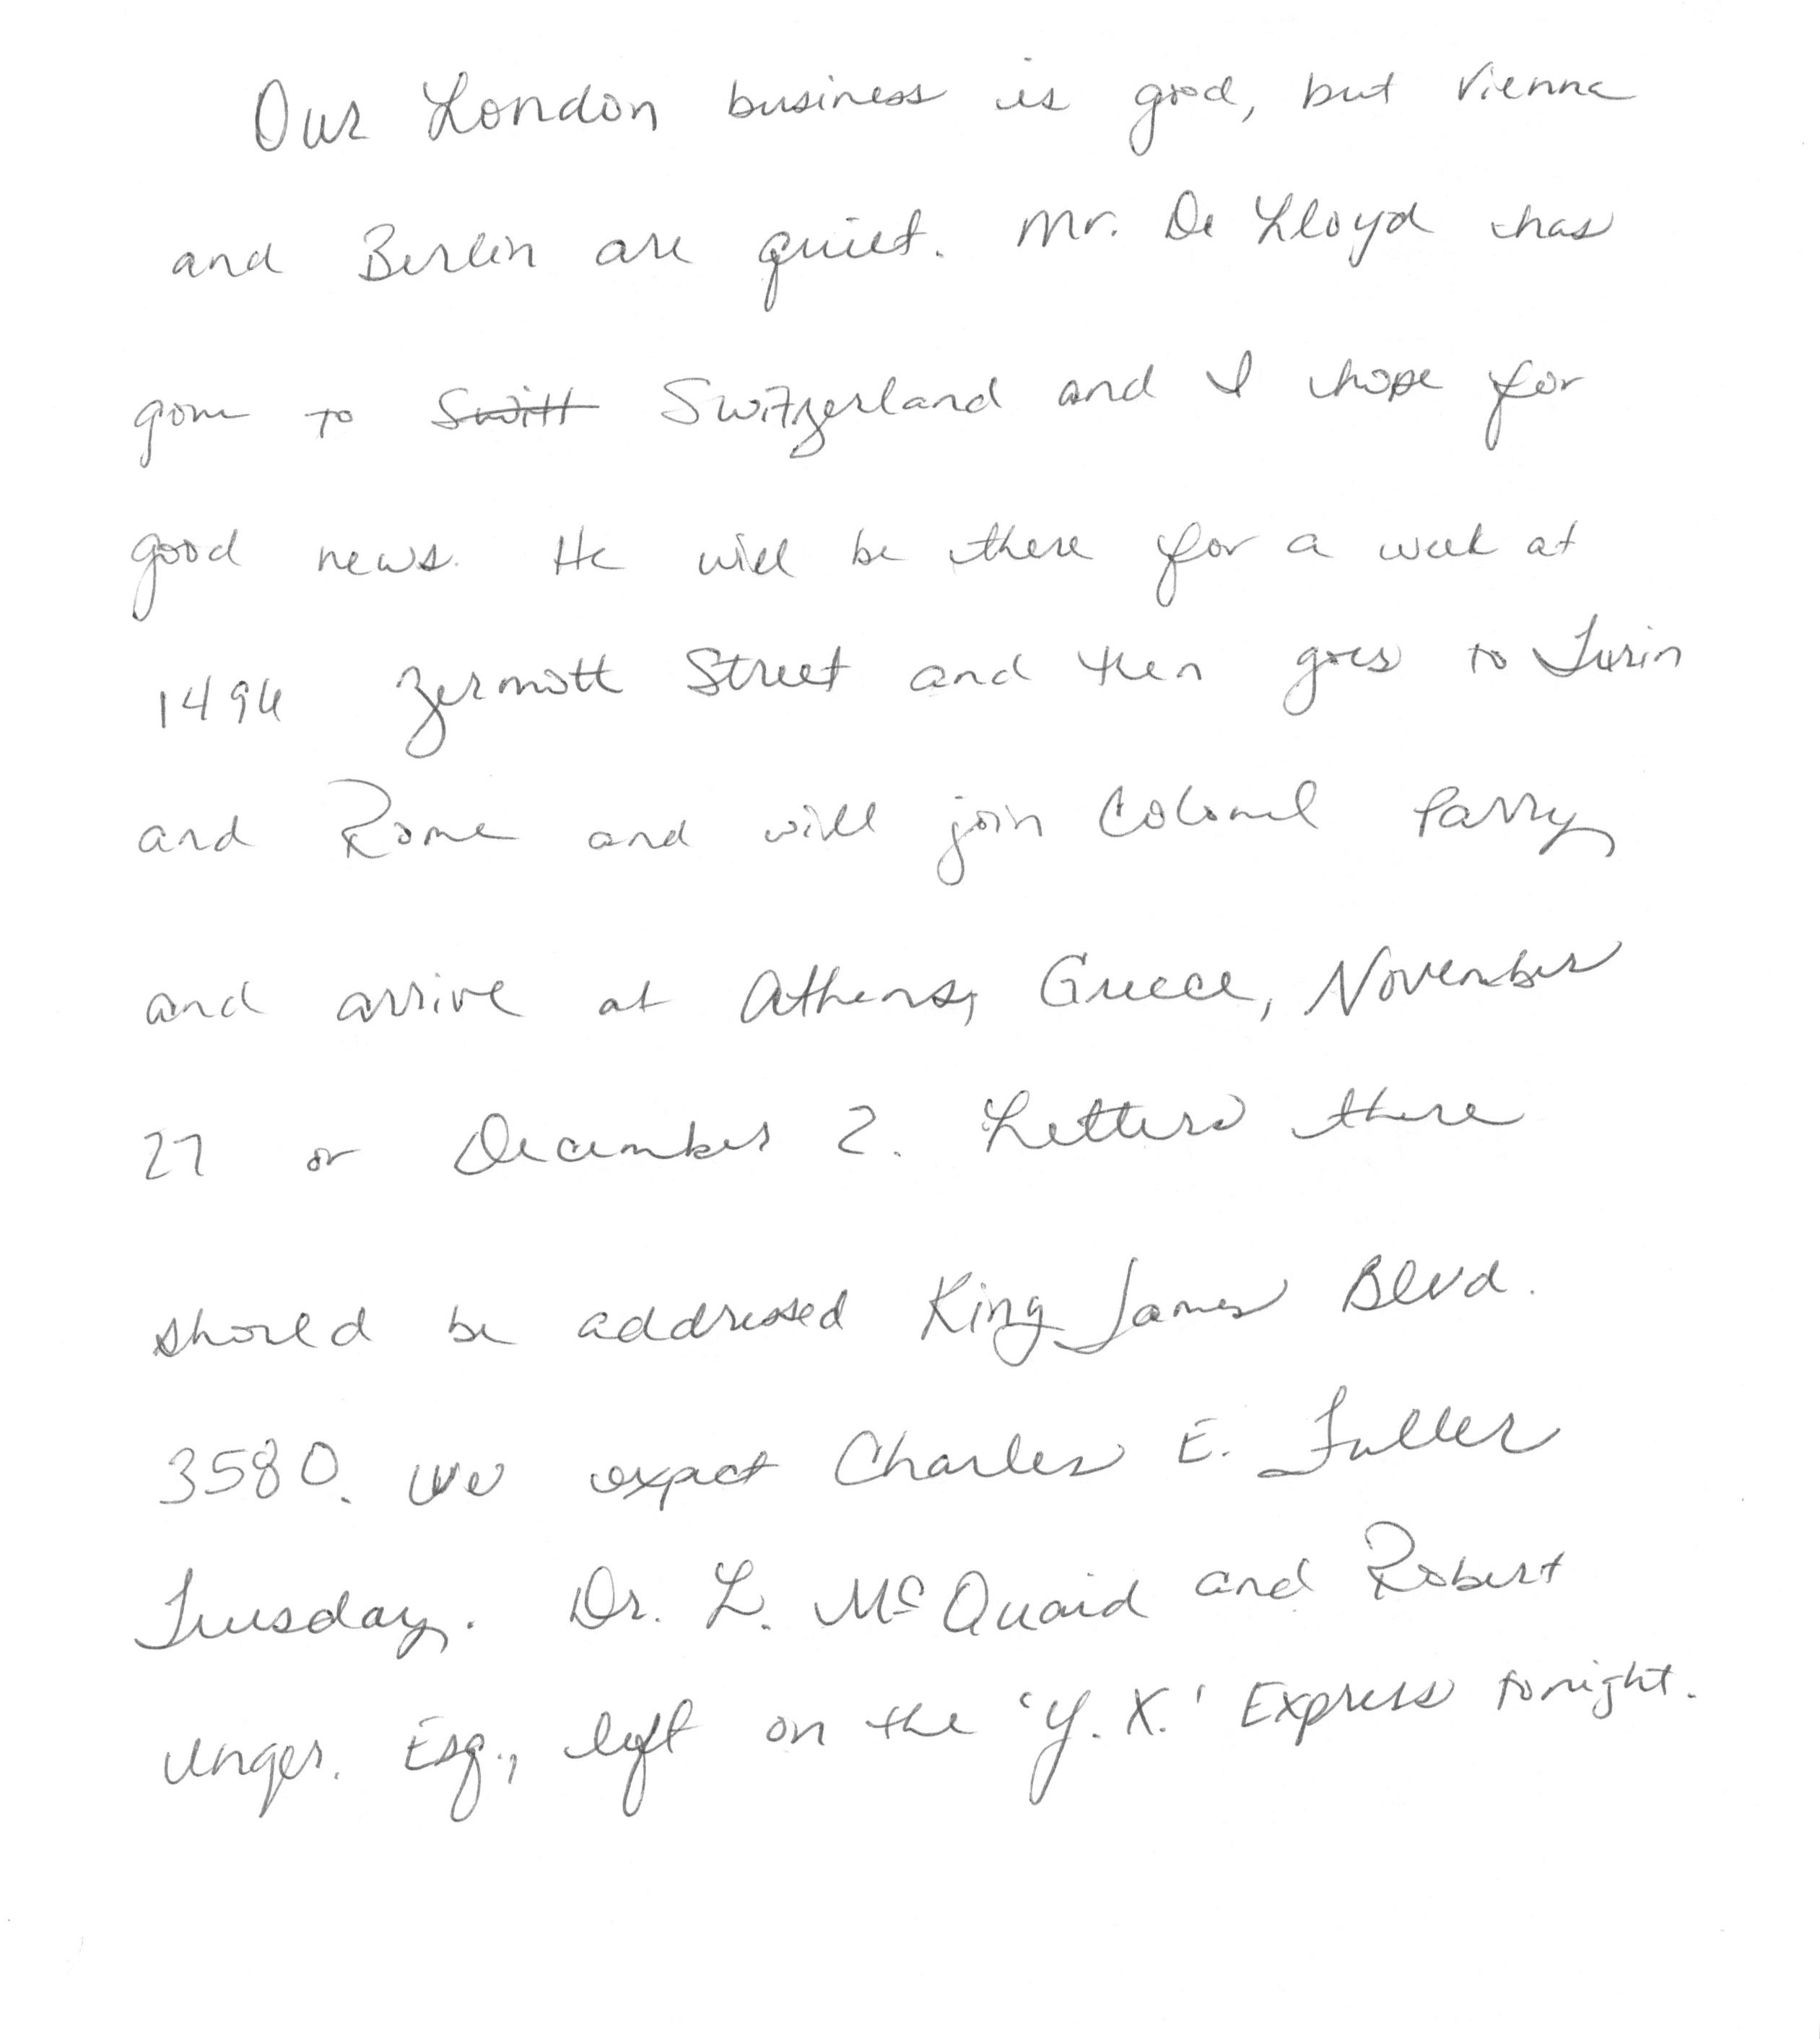 Our London business is good, but Vienna
and Berlin are quiet. Mr. De Lloyd has
gone to Switt Switzerland and I hope for
good news. He will be there for a week at
1496 Zermott Street and then goes to Turin
and Rome and will join Colonel Parry
and arrive at Athens, Greece, November
27 or December 2. Letters there
should be addressed King James Blvd.
3580. We expect Charles E. Fuller
Tuesday. Dr. L. McQuaid and Robert
Unger. Esq., left on the 'Y. X.' Express tonight.